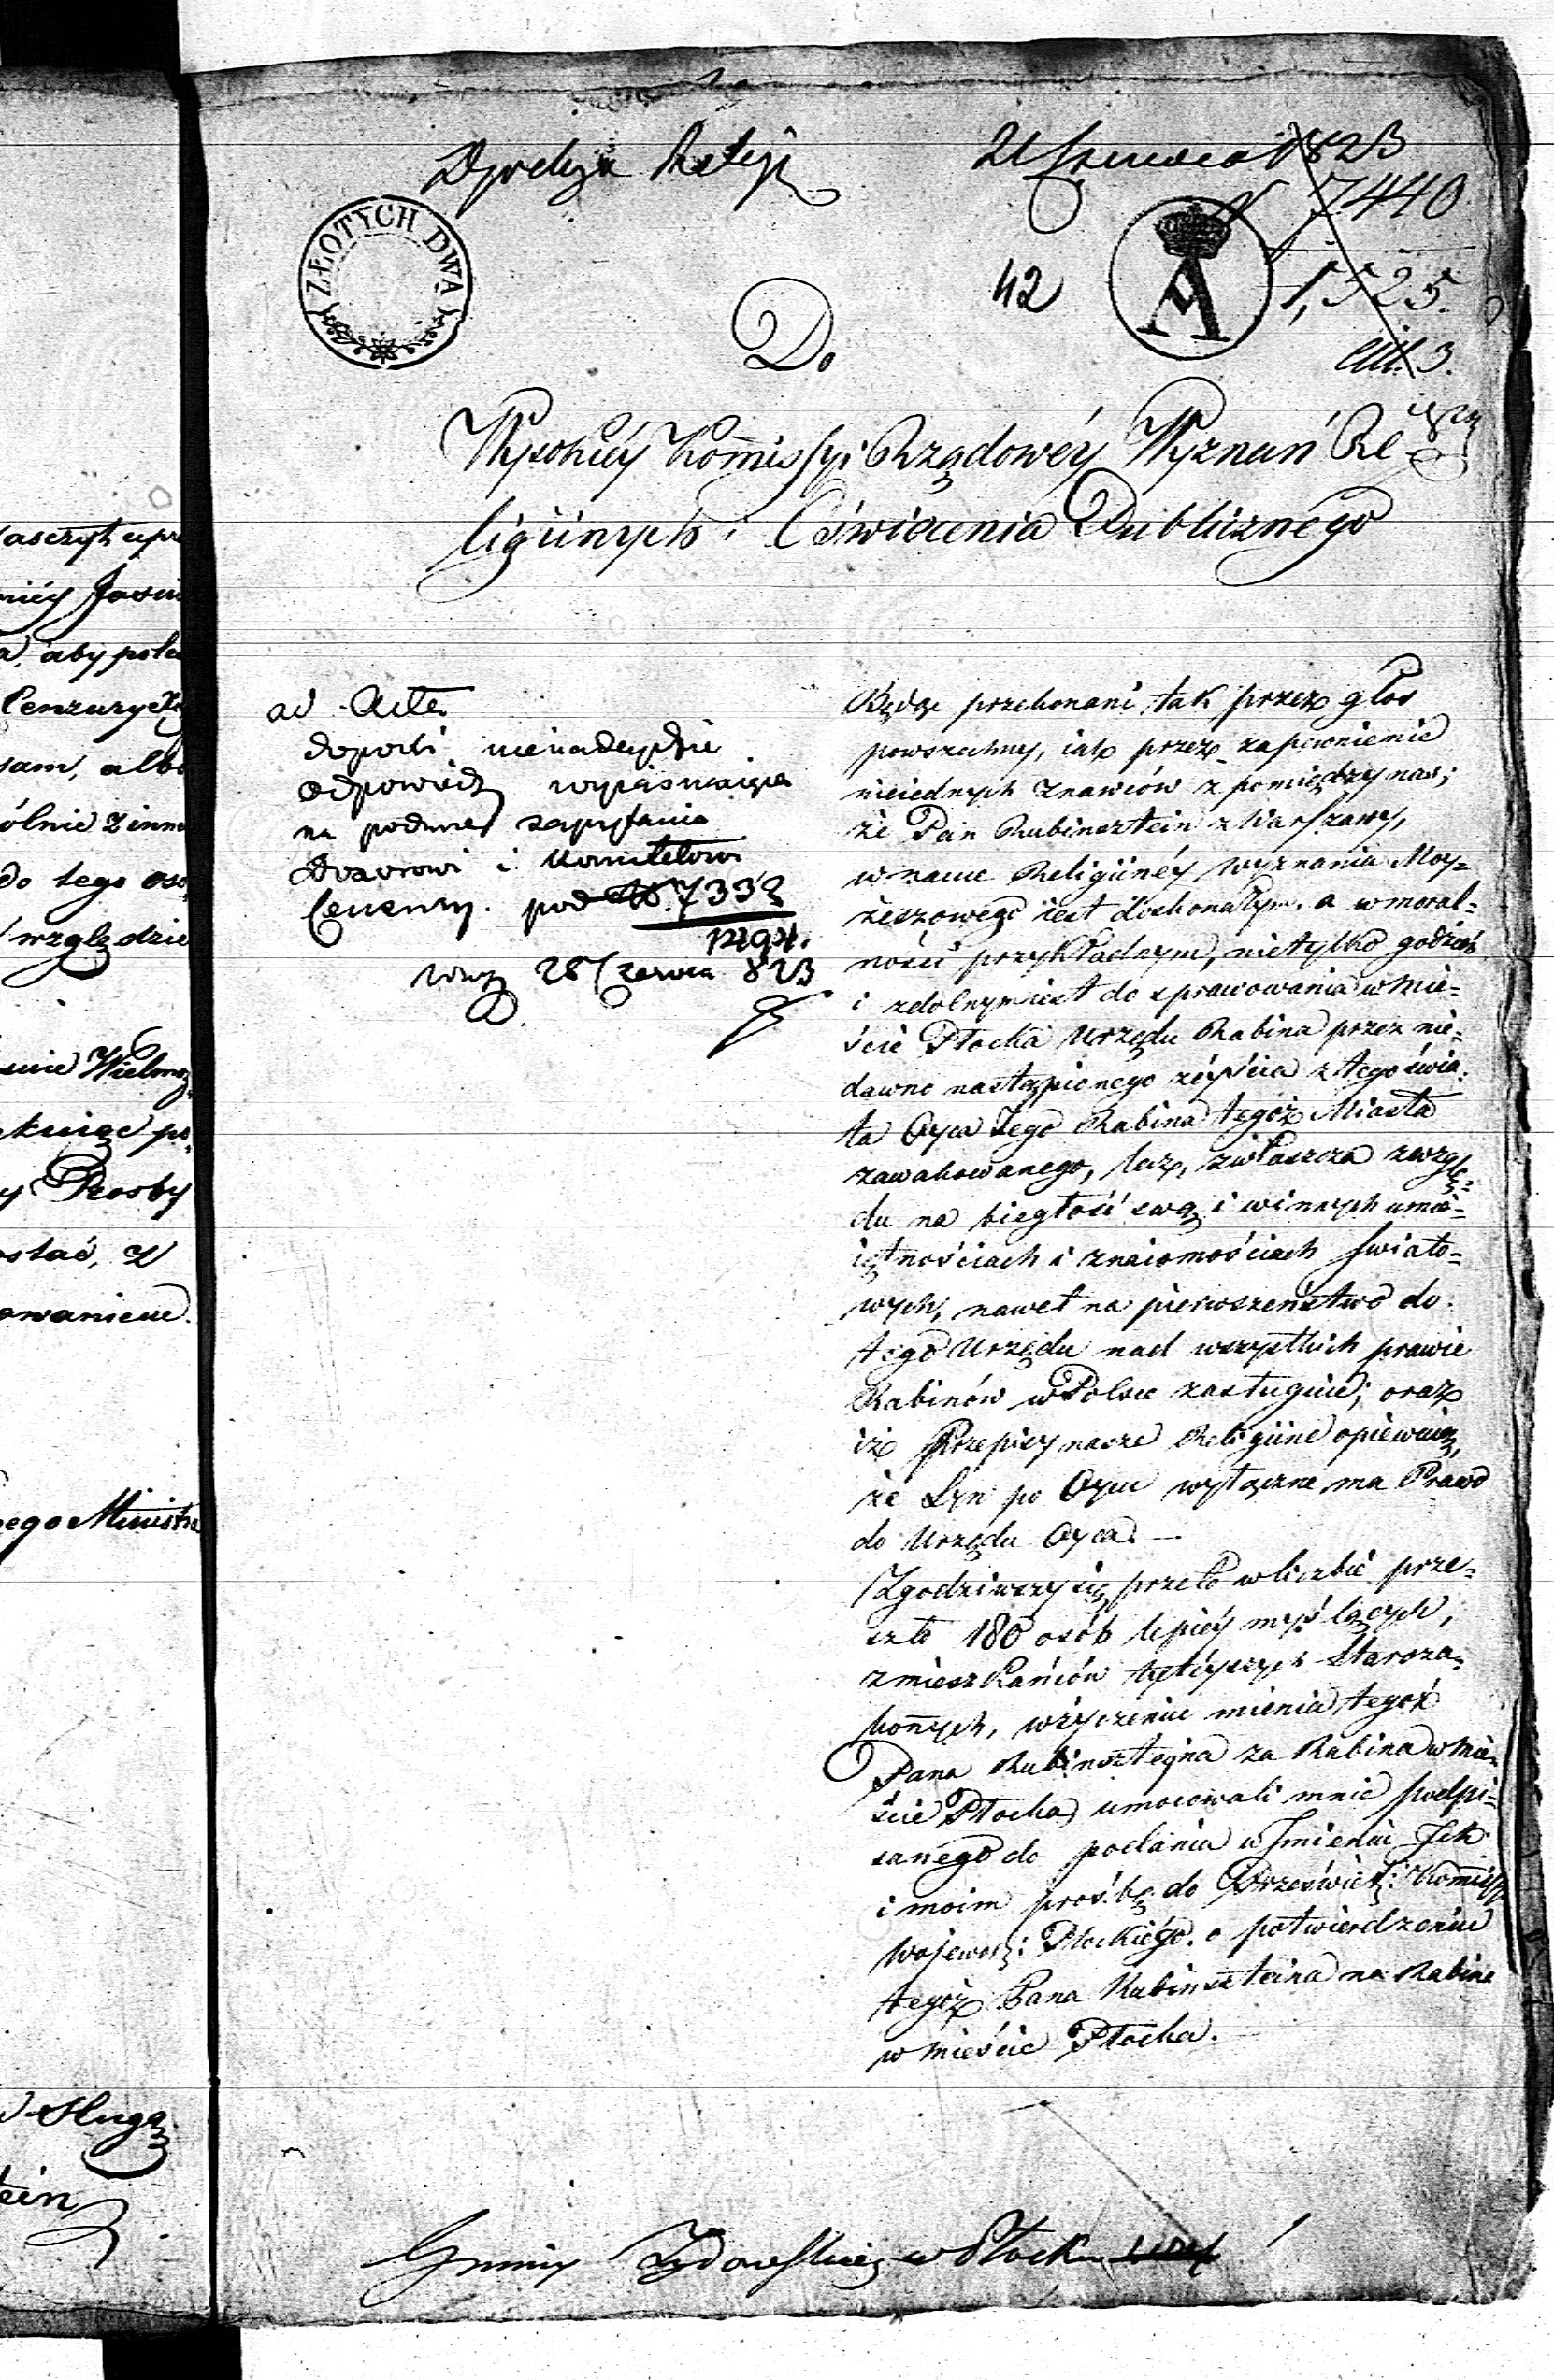 aszczyt upr
niéy Jaśni
a, aby pole
Cenzury
sam, albo
ólnie z inne
do tego oso
względzie
Wielmo
kuiąc po
y Prosby
ostać, z
owaniem.
ego Ministra
Sługą
tein
Czerwca 1823
N 7440
ZŁOTYCH DWA
42
A
1,525.
Do
Wysokiéy Kommissyi Rządowéy Wyznań Re-
ligiinych i Oświecenia Publicznégo
ad Acta
dopóki nienadeydzie
odpowiedź wyiaśniaiąca
na podane zapytania
Dozorowi i Komitetowi
Cenzury. pod No. 7332
28 Czerwca 823
Będąc przekonani, tak przez głos
powszechny, iak przez zapewnienie
nieiednych znawców z pomiędzy nas;
że Pan Rubinsztein z Warszawy,
w nauce Religiinéy wyznania Moy-
żeszowego iest doskonałym, a w moral-
ności przykładnym, nietylko godzien
i zdolnym iest do sprawowania w Mie-
ście Płocku Urzędu Rabina przez nie-
dawno nastąpionego zéyścia z tego świa-
ta Oyca Iego Rabina tegoż Miasta
zawakowanego, lecz, zwłaszcza z wzglę-
du na biegłość swą i w innych umie-
iętnościach i znaiomościach świato-
wych, nawet na pierwszeństwo do
tego Urzędu nad wszystkich prawie
Rabinów w Polsce zasługuie; oraz
iż Przepisy nasze Religiine opiewaią,
że Syn po Oycu wyłączne ma Prawo
do Urzędu Oyca. —
Zgodziwszy się przeto w liczbie prze-
szło 180 osób lepiéy myślących,
z mieszkańców tutéyszych Staroza-
konnych, w życzeniu mienia tegoż
Pana Rubinszteyna za Rabina w Mie-
ście Płocka, umocowali mnie podpi-
sanego do podania w Imieniu Ich
i moim prośbę do Prześwięt: Kommiss
Wojewodz: Płockiégo. o potwierdzenie
tegoż Pana Rubinszteina na Rabina
w mieście Płocka.
Gminy Żydowskiey w Płocku